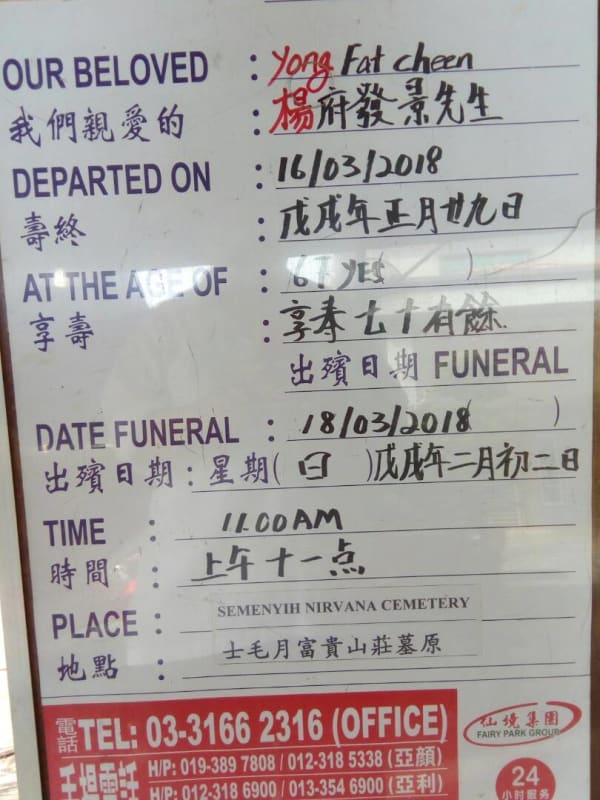 OUR BELOVED : Yong Fat cheen
我們親愛的 : 楊府發景先生
DEPARTED ON : 16/03/2018
壽終 : 戊戌年正月廿九日
AT THE AGE OF : 67 YES( )
享壽 : 享寿七十有餘
出殯日期 FUNERAL
DATE FUNERAL : 18/03/2018( )
出殯日期 : 星期( 日 )戊戌年二月初二日
TIME : 11.00AM
時間 : 上午十一点
PLACE : SEMENYIH NIRVANA CEMETERY
地點 : 士毛月富貴山莊墓原
電話 TEL: 03-3166 2316 (OFFICE)
仙境集團
FAIRY PARK GROUP
H/P: 019-389 7808 / 012-318 5338 (亞顏)
H/P: 012-318 6900 / 013-354 6900 (亞利)
24
小时服务